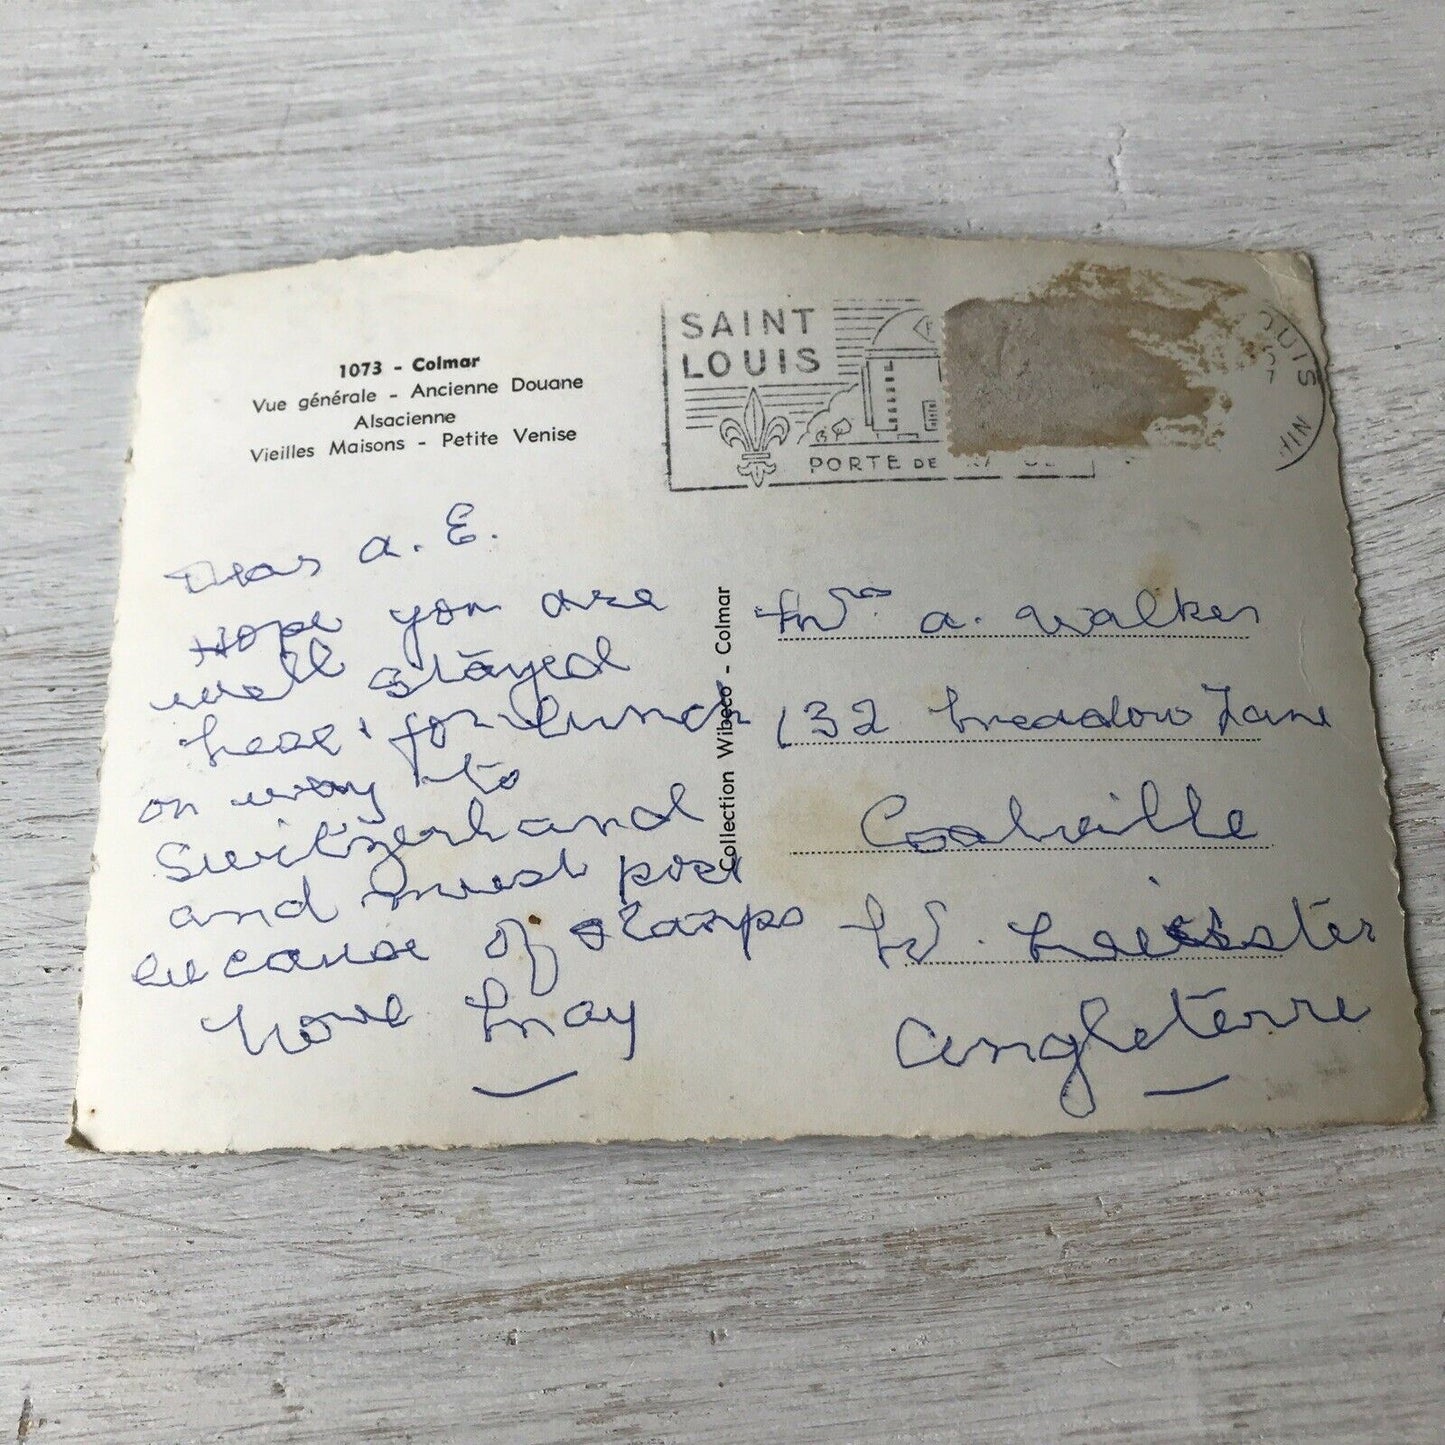 1073 - Colmar
Vue générale - Ancienne Douane
Alsacienne
Vieilles Maisons - Petite Venise
SAINT
LOUIS
PORTE DE
Collection Wibeco - Colmar
Dear A. E.
Hope you are
well stayed
here for lunch
on way to
Switzerland
and must post
because of stamps
Love May
Mrs A. Walker
132 Meadow Lane
Coalville
Nr. Leicester
Angleterre